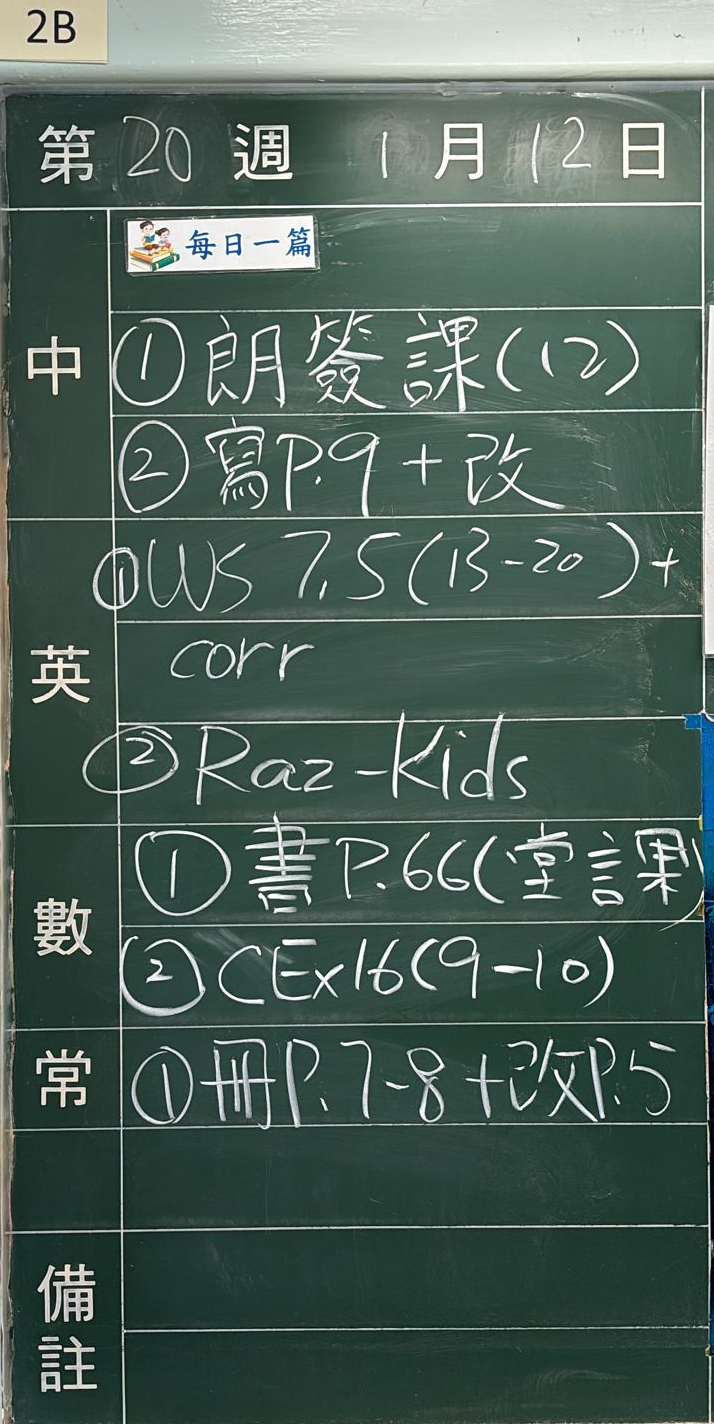 2B
第 20 週 1 月 12 日
每日一篇
中
①朗簽課(12)
②寫P.9+改
英
①WS 7.5(13-20)+
corr
②Raz-Kids
數
①書P.66(堂課)
②CEx16(9-10)
常
①冊P.7-8+改P.5
備註